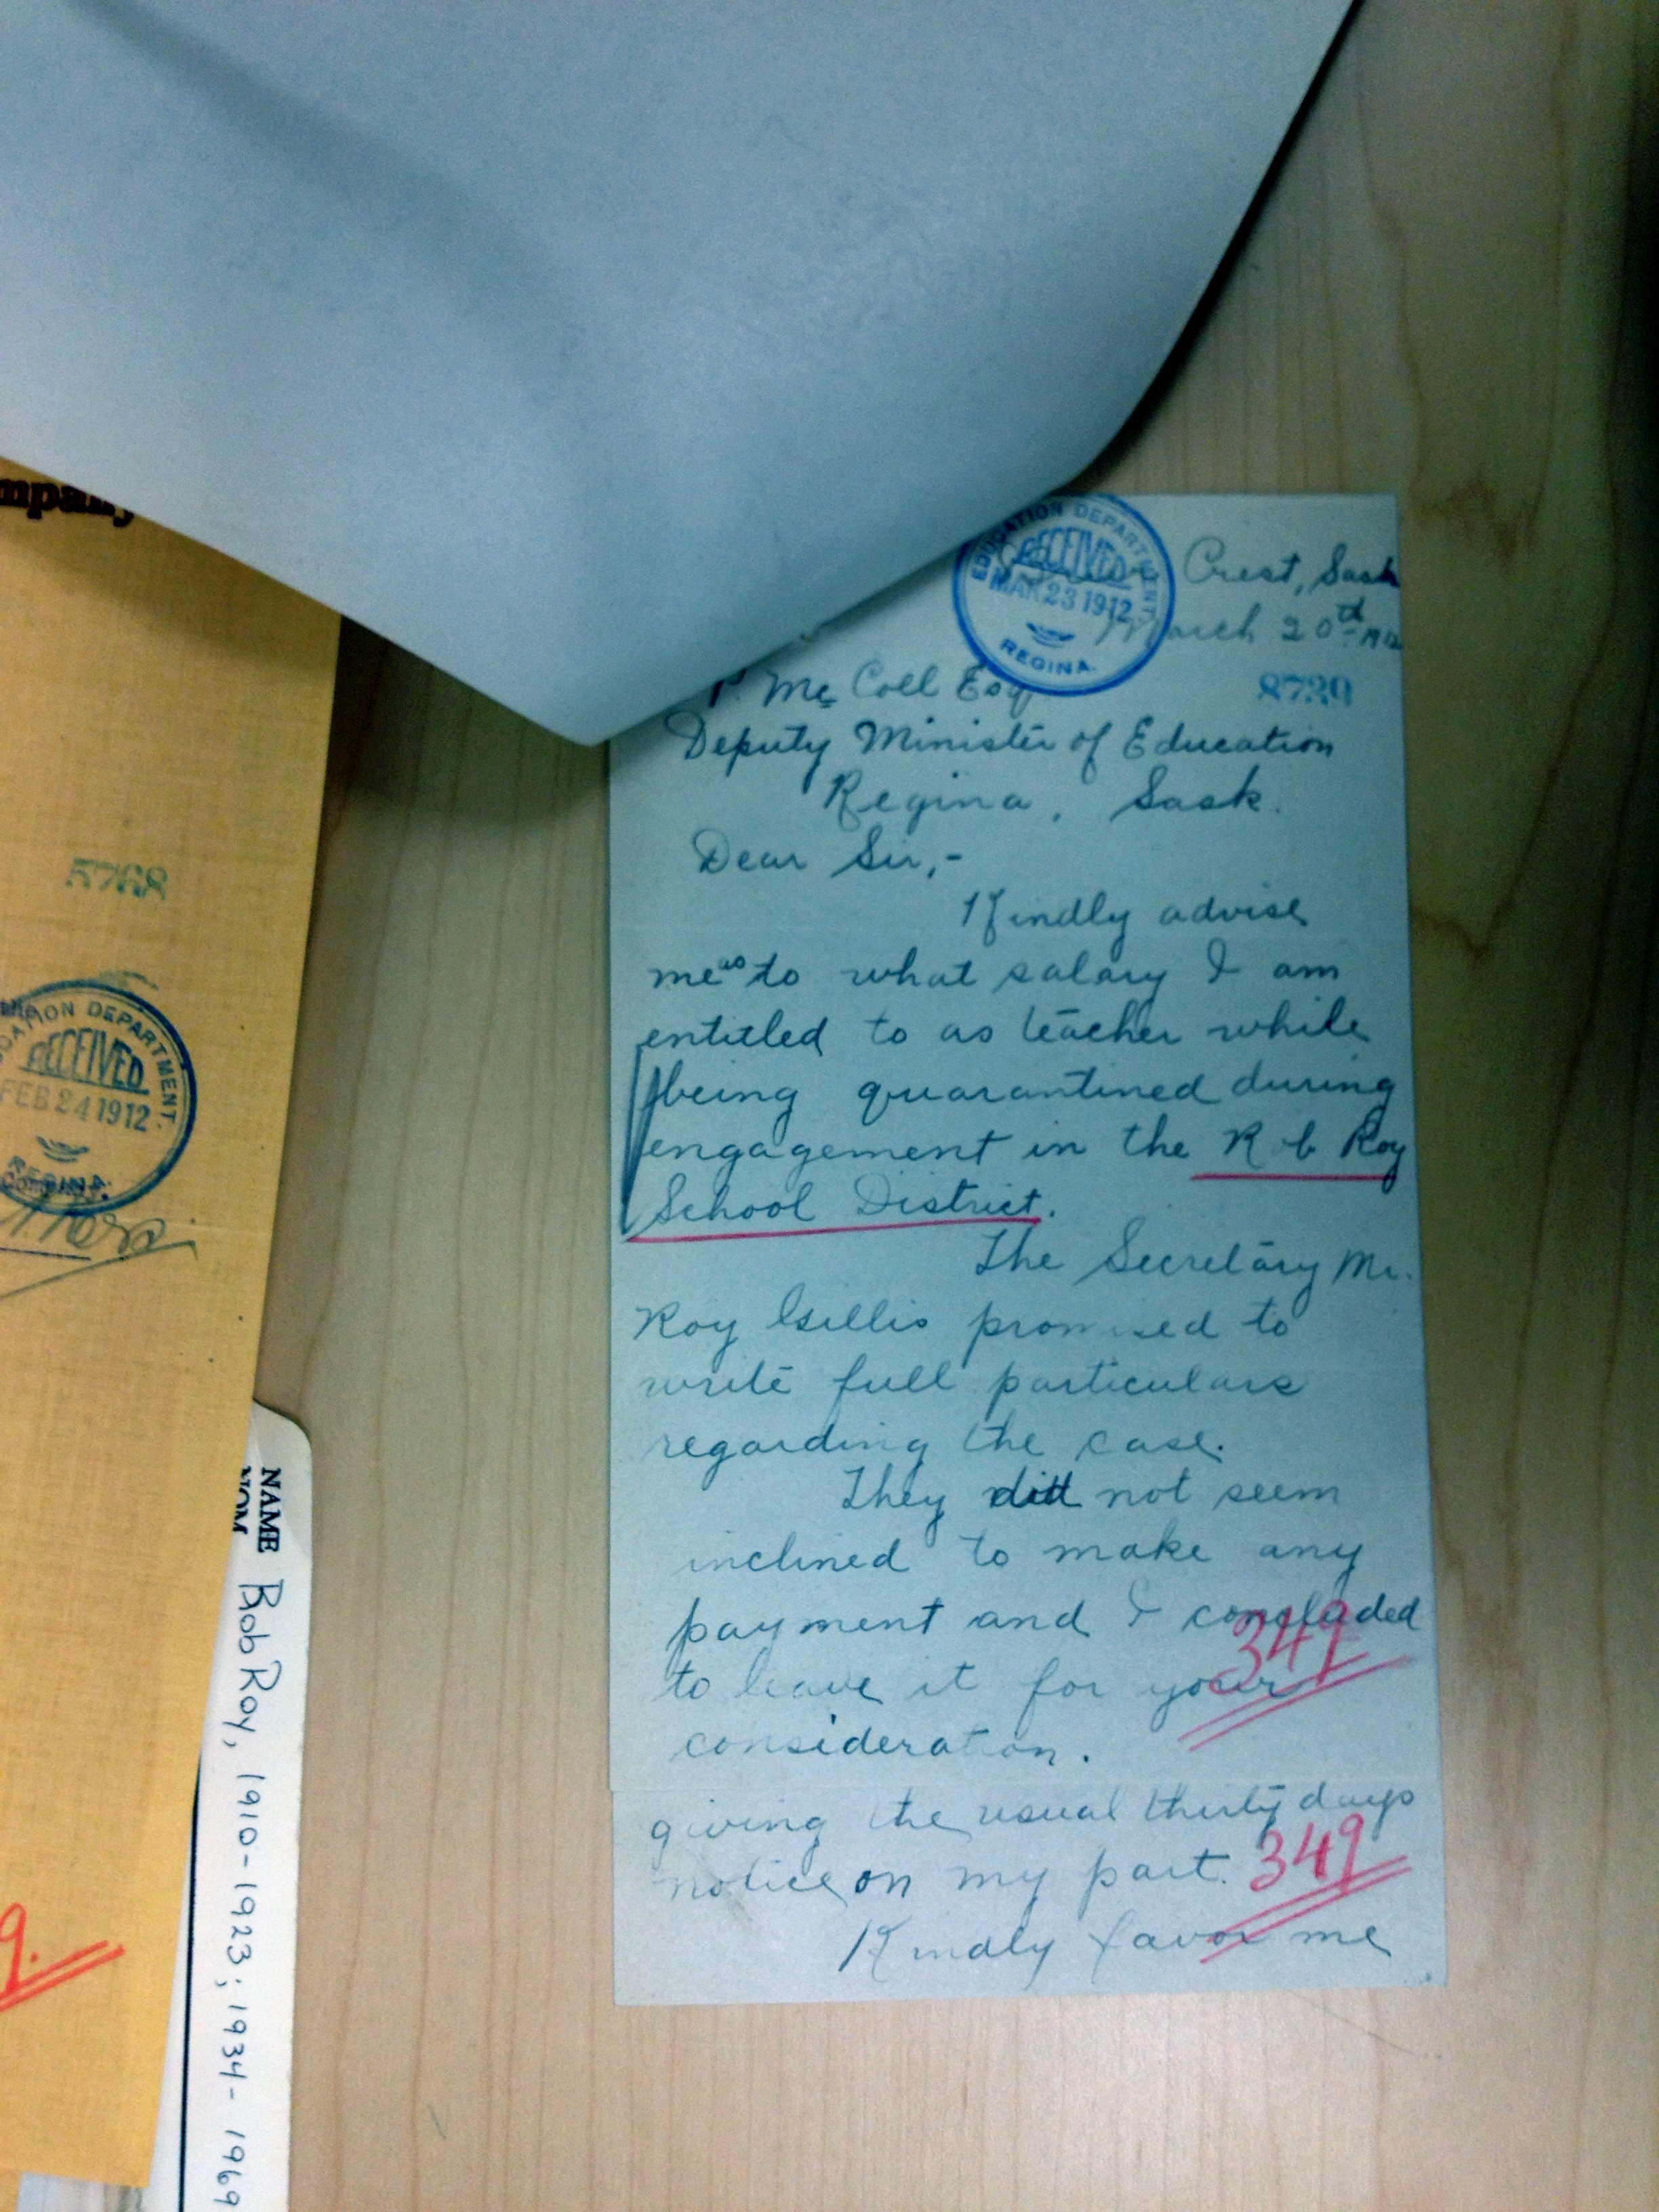 mpany
5768
EDUCATION DEPARTMENT
RECEIVED
FEB 24 1912
REGINA
9.
NAME Bob Roy, 1910-1923; 1934-1969
NOM
EDUCATION DEPARTMENT
RECEIVED
MAR 23 1912
REGINA.
Crest, Sask
March 20th 1912
8720
P. Mc Coll Esq
Deputy Minister of Education
Regina, Sask.
Dear Sir,-
Kindly advise
me as to what salary I am
entitled to as teacher while
being quarantined during
engagement in the Rob Roy
School District.
The Secretary Mr.
Roy Gillis promised to
write full particulars
regarding the case.
They did not seem
inclined to make any
payment and I concluded
349
to leave it for your
consideration.
giving the usual thirty days
notice on my part. 349
Kindly favor me